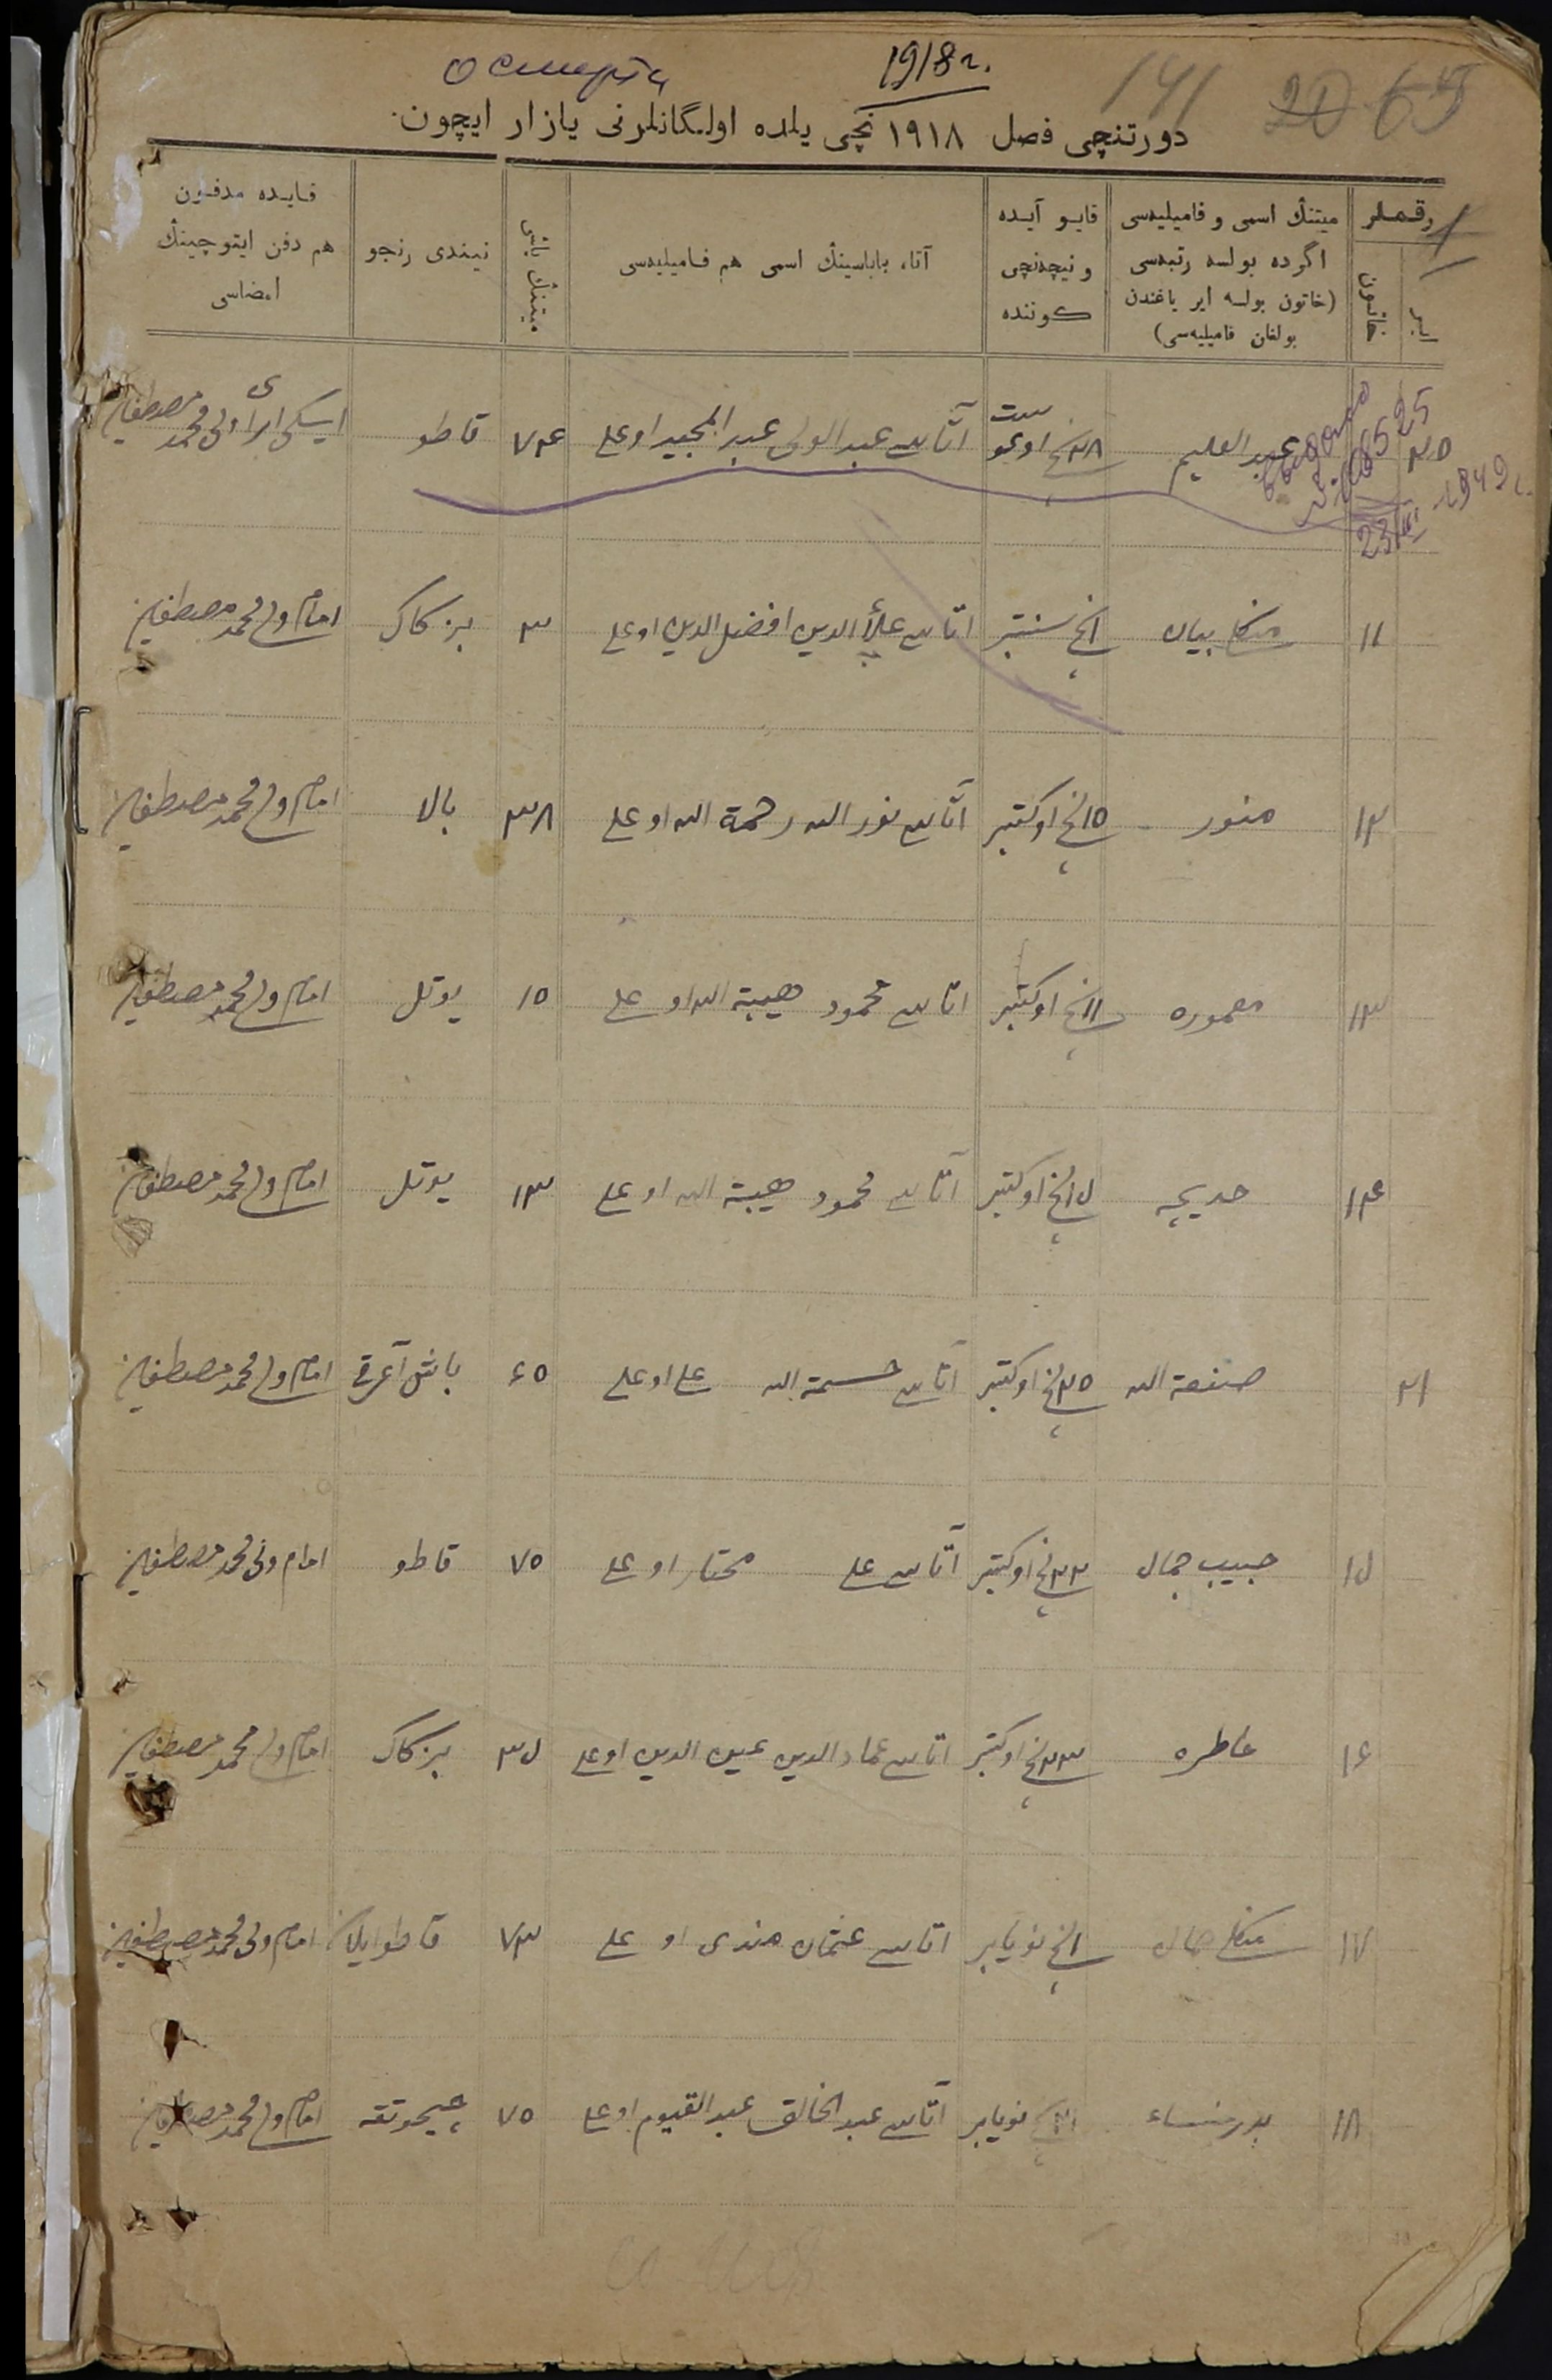 о смерти
1918 г.
141 20 65
دورتنچی فصل ۱۹۱۸ نچی یلده اولگانلرنی یازار ایچون
رقملر
ایر
خاتون
میتنڭ اسمی و فامیلیه‌سی
اگرده بولسه رتبه‌سی
(خاتون بولسه ایر یاغندن
بولغان فامیلیه‌سی)
قایو آیده
و نیچه‌نچی
کوننده
آتا، باباسینڭ اسمی هم فامیلیه‌سی
میتنڭ یاشی
نیندی رنجو
قایده مدفون
هم دفن ایتوچینڭ
امضاسی
۲۰ عبد العلیم ۲۸نچی اوغوست آتاسی عبد الولی عبد المجید اوغلی ۷۴ قاطو
25
23/III 1949 г.
۱۱ بیان ۱نچی سنتبر اتاسی علأ الدین افضل الدین اوغلی ۳ بزگاک امام ولی محمد مصطفین
۱۲ منور ۱۵نچی اوکتبر آتاسی نور الله رحمة الله اوغلی ۳۸ بالا امام ولی محمد مصطفین
۱۳ معموره ۱۱نچی اوکتبر اتاسی محمود هیبة الله اوغلی ۱۵ یوتل امام ولی محمد مصطفین
۱۴ خدیجه نچی اوکتبر آتاسی محمود هیبة الله اوغلی ۱۳ یوتل امام ولی محمد مصطفین
۲۱ صنعة الله ۲۵نچی اوکتبر آتاسی علی اوغلی ۶۵ باش آغرو امام ولی محمد مصطفین
۱۵ حبیب جمال ۲۲نچی اوکتبر آتاسی علی مختار اوغلی ۷۵ قاطو امام ولی محمد مصطفین
۱۶ عاطره ۲۳نچی اوکتبر اتاسی عماد الدین عین الدین اوغلی بزگاک امام ولی محمد مصطفین
۱۷ جمال ۱نچی نویابر اتاسی عثمان اوغلی ۷۳ قاطو امام ولی محمد مصطفین
۱۸ نویابر آتاسی عبد الخالق عبد القیوم اوغلی ۷۵ امام ولی محمد مصطفین